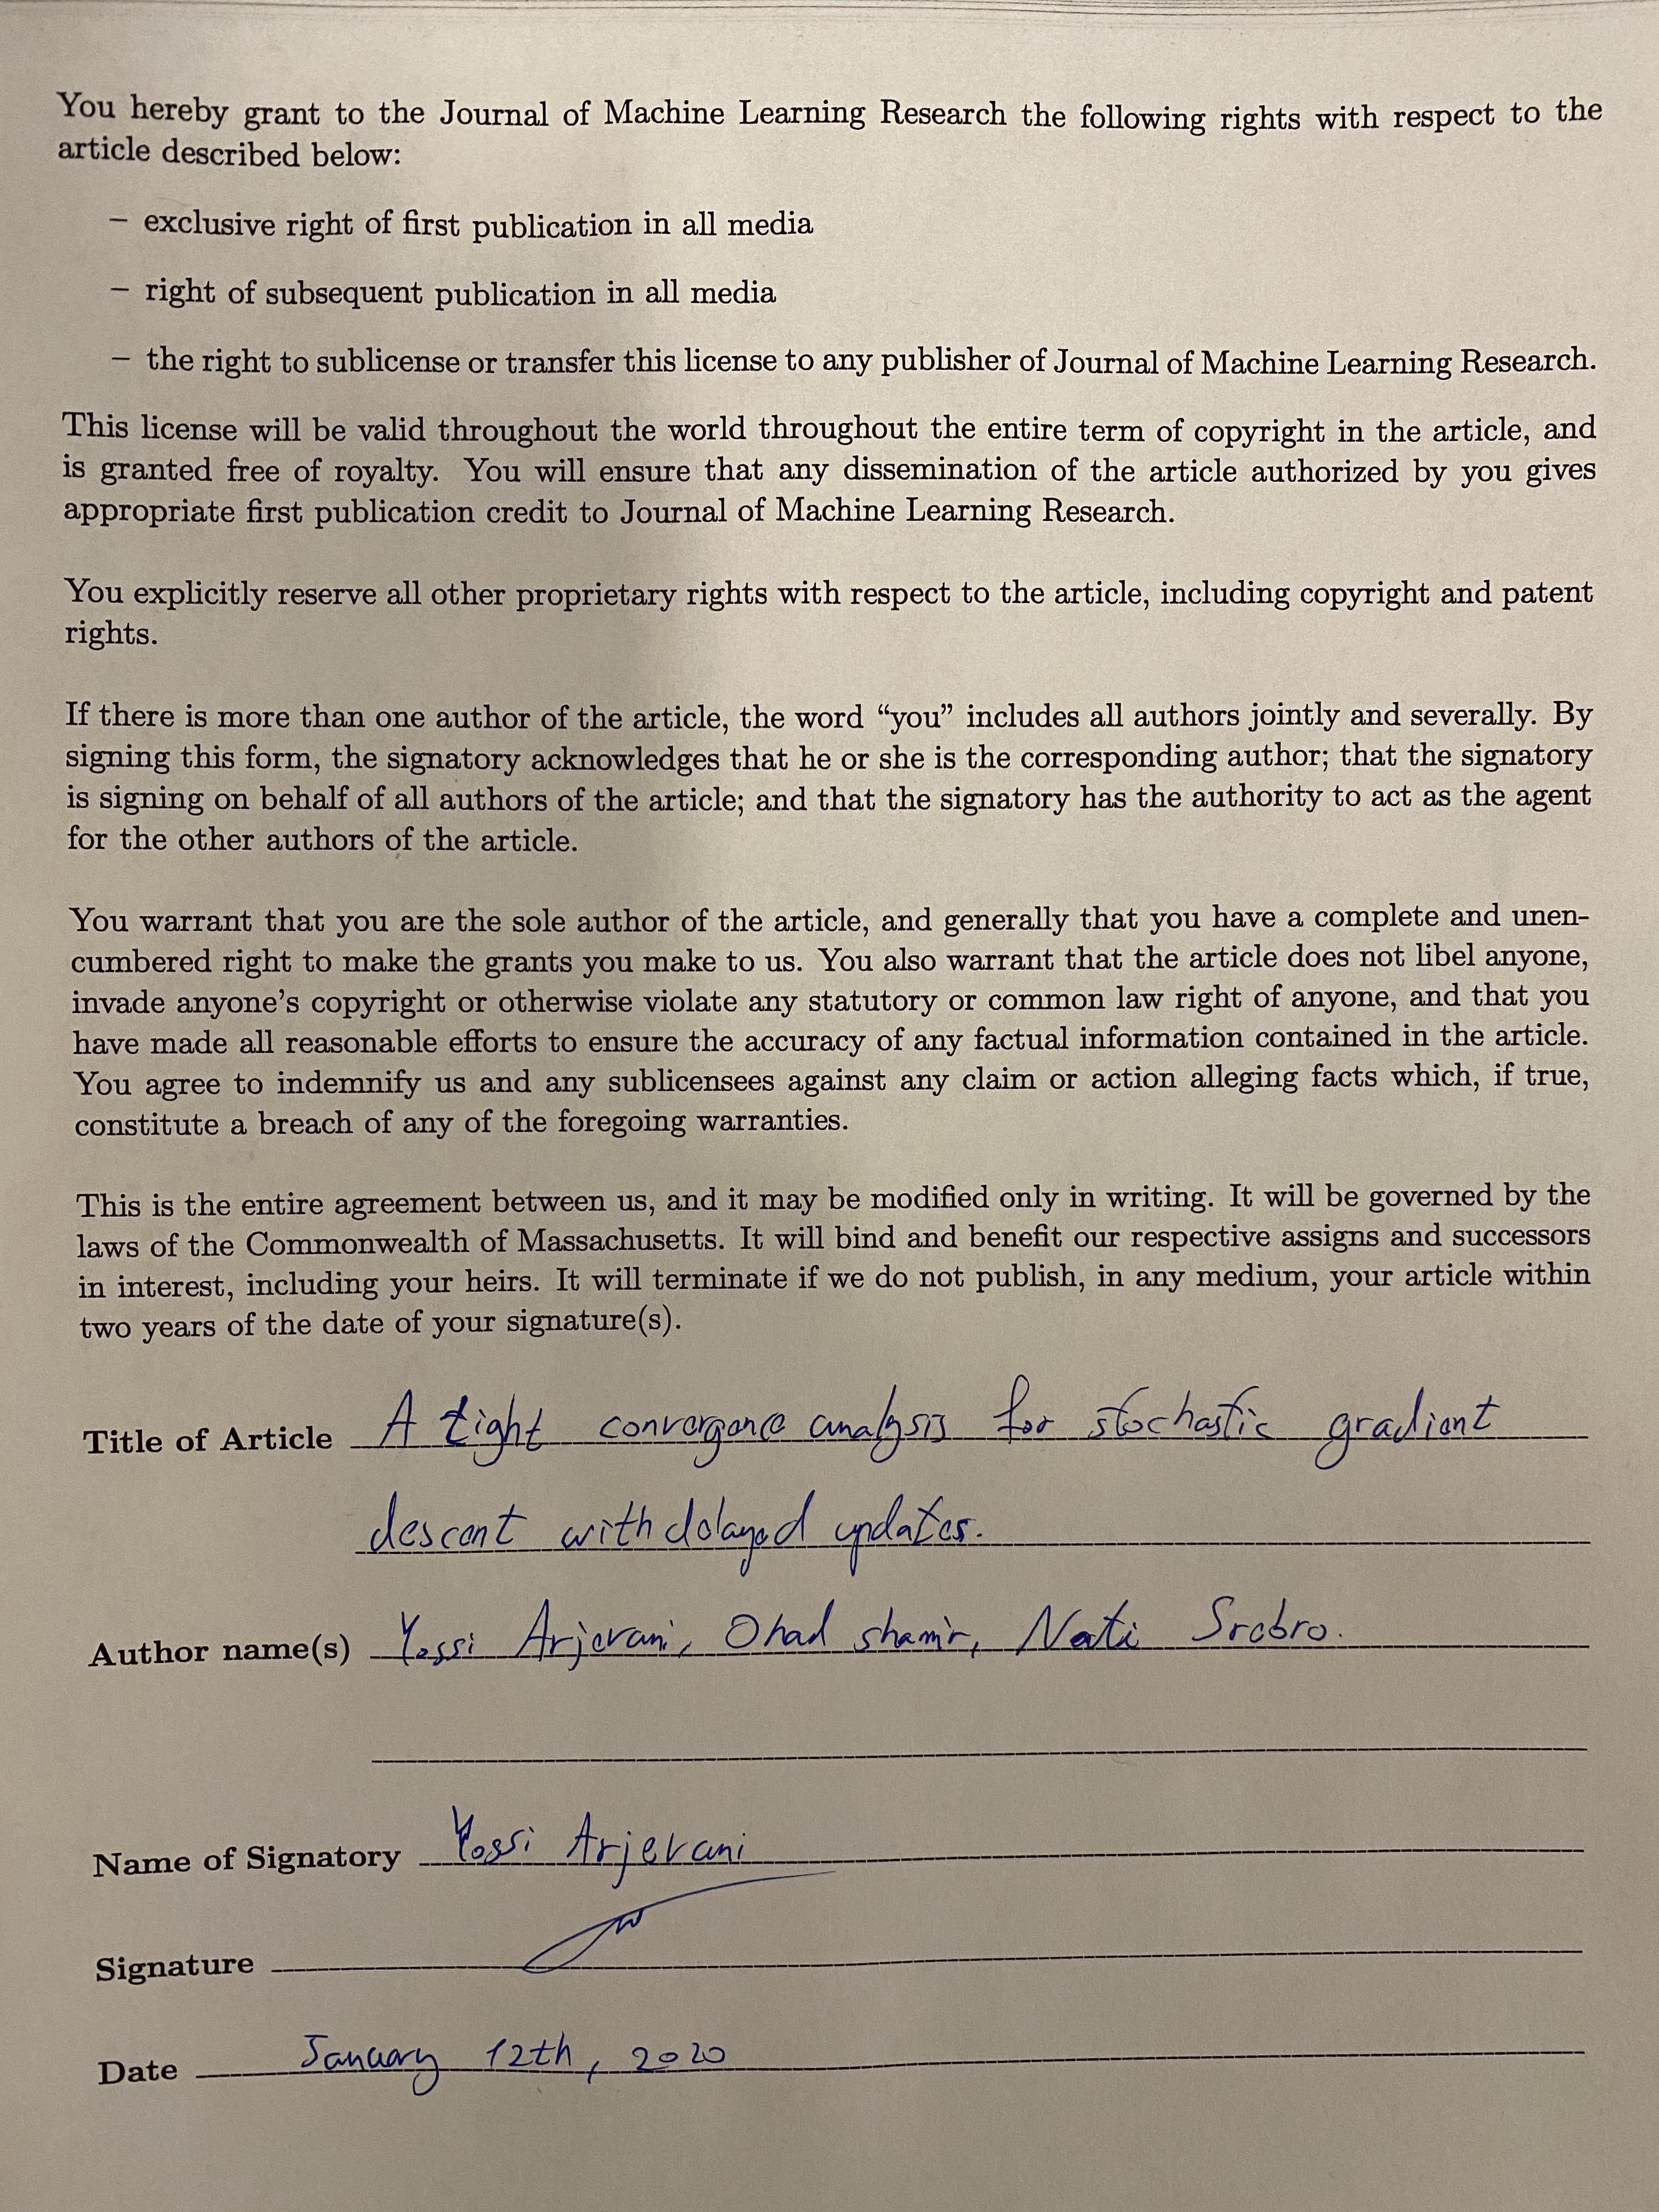 You hereby grant to the Journal of Machine Learning Research the following rights with respect to the
article described below:
– exclusive right of first publication in all media
– right of subsequent publication in all media
– the right to sublicense or transfer this license to any publisher of Journal of Machine Learning Research.
This license will be valid throughout the world throughout the entire term of copyright in the article, and
is granted free of royalty. You will ensure that any dissemination of the article authorized by you gives
appropriate first publication credit to Journal of Machine Learning Research.
You explicitly reserve all other proprietary rights with respect to the article, including copyright and patent
rights.
If there is more than one author of the article, the word “you” includes all authors jointly and severally. By
signing this form, the signatory acknowledges that he or she is the corresponding author; that the signatory
is signing on behalf of all authors of the article; and that the signatory has the authority to act as the agent
for the other authors of the article.
You warrant that you are the sole author of the article, and generally that you have a complete and unen-
cumbered right to make the grants you make to us. You also warrant that the article does not libel anyone,
invade anyone’s copyright or otherwise violate any statutory or common law right of anyone, and that you
have made all reasonable efforts to ensure the accuracy of any factual information contained in the article.
You agree to indemnify us and any sublicensees against any claim or action alleging facts which, if true,
constitute a breach of any of the foregoing warranties.
This is the entire agreement between us, and it may be modified only in writing. It will be governed by the
laws of the Commonwealth of Massachusetts. It will bind and benefit our respective assigns and successors
in interest, including your heirs. It will terminate if we do not publish, in any medium, your article within
two years of the date of your signature(s).
Title of Article A tight convergence analysis for stochastic gradient
descent with delayed updates.
Author name(s) Yossi Arjevani, Ohad shamir, Nati Srebro.
Name of Signatory Yossi Arjevani
Signature
Date January 12th, 2020